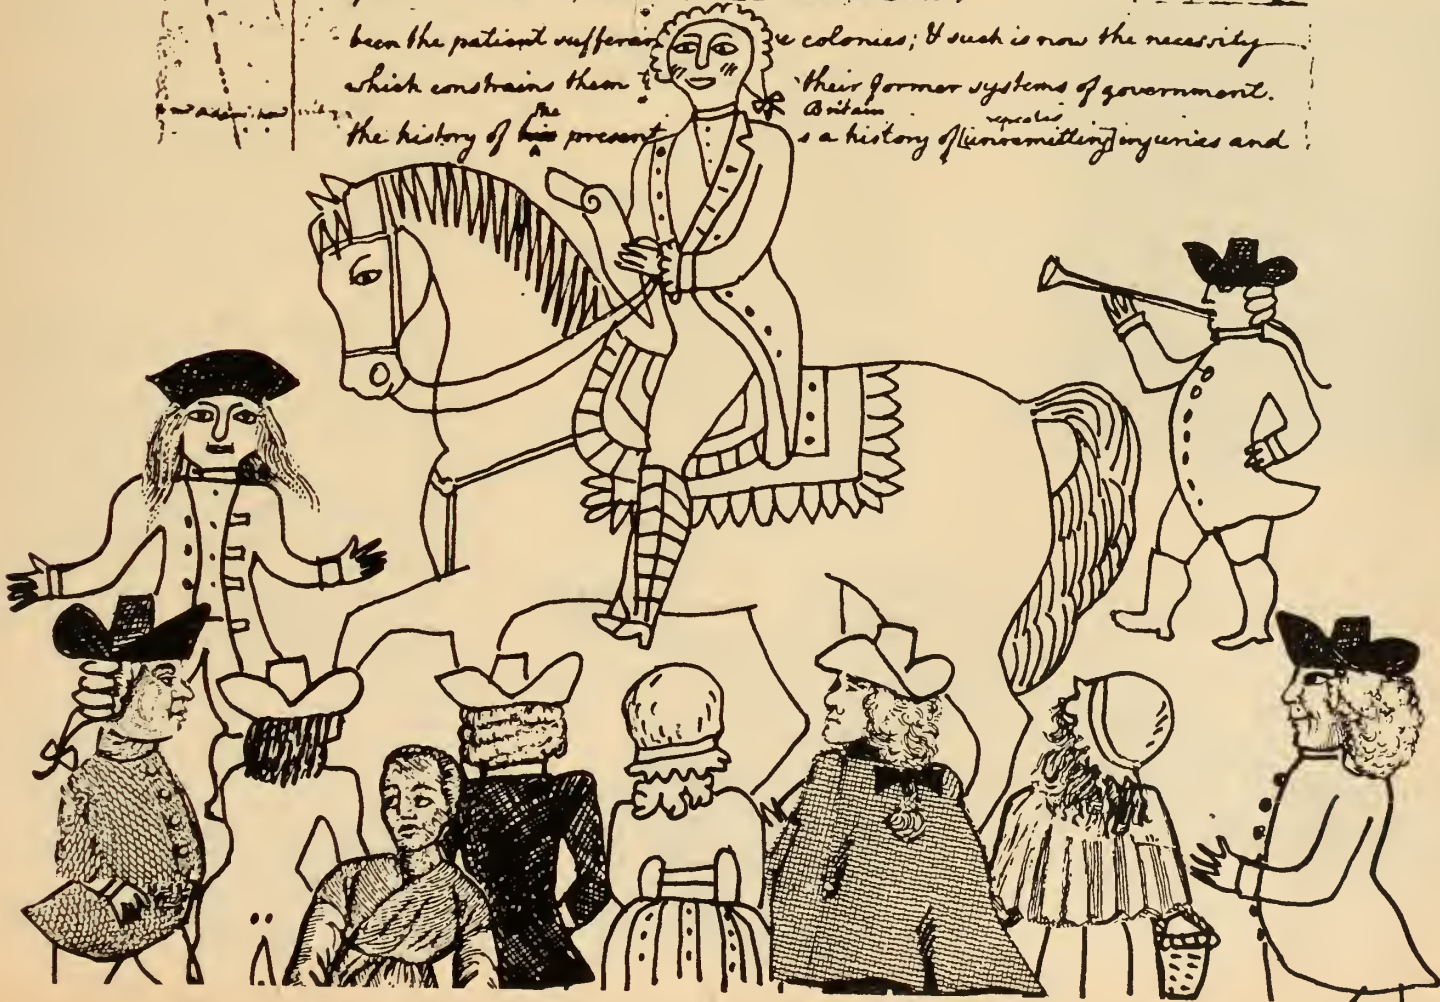 been the patient sufferan e colonies; & such is now the necessity
which constrains them t their former systems of government.
the history of his the present Britain s a history of [unremitting] repeated injuries and